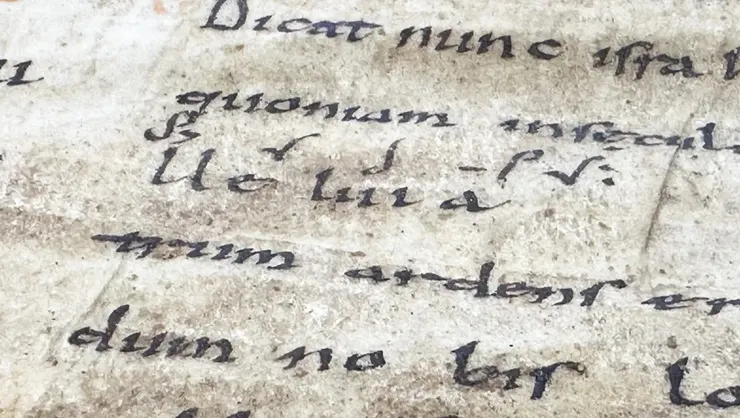 Dicat nunc isra
quoniam in sęcul
lle lui a
trum ardens er
dum no bis lo